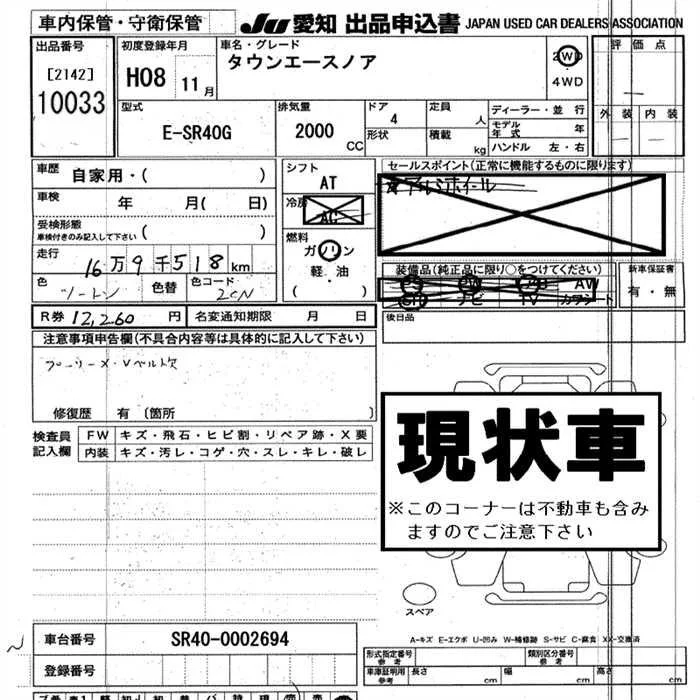 車内保管・守衛保管
JU 愛知 出品申込書 JAPAN USED CAR DEALERS ASSOCIATION
出品番号 初度登録年月 車名・グレード 評価点
[2142] H08 11月 タウンエースノア 2WD
10033 4WD
外装 内装
型式 排気量 ドア 定員 ディーラー・並行
E-SR40G 2000 CC 4 人 モデル年式
形状 積載 kg ハンドル 左・右
車歴 自家用・( ) シフト セールスポイント(正常に機能するものに限ります)
AT アルミホイール
車検 年 月( 日) 冷房
AC
受検形態 ( )
車検付きのみ記入して下さい
燃料
走行 ガソリン
16万9千518km 軽・油
( )
装備品(純正品に限り○をつけてください) 新車保証書
AW
ナビ TV カワシート
有・無
色 ツートン 色替 色コード 2CN
R券 12,260 円 名変通知期限 月 日 後日品
注意事項申告欄(不具合内容等は具体的に記入して下さい)
プーリーX・Vベルト欠
修復歴 有 〔箇所 〕
検査員 FW キズ・飛石・ヒビ割・リペア跡・X要
記入欄 内装 キズ・汚レ・コゲ・穴・スレ・キレ・破レ
現状車
※このコーナーは不動車も含み
ますのでご注意下さい
スペア
A-キズ E-エクボ U-凹み W-補修跡 S-サビ C-腐食 XX-交換済
車台番号 SR40-0002694
登録番号
形式指定番号 参考 類別区分番号 参考
車庫証明用 参考 長さ cm 幅 cm 高さ cm